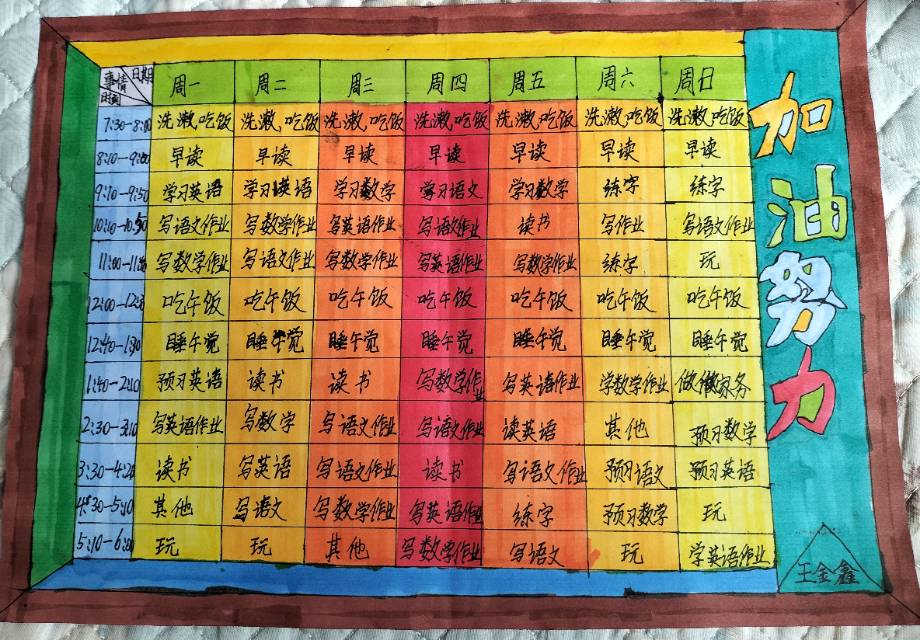 日期
事情
时间
周一 周二 周三 周四 周五 周六 周日
7:30-8:00 洗漱,吃饭 洗漱,吃饭 洗漱,吃饭 洗漱,吃饭 洗漱,吃饭 洗漱,吃饭 洗漱,吃饭
8:10-9:00 早读 早读 早读 早读 早读 早读 早读
9:10-9:50 学习英语 学习英语 学习数学 学习语文 学习数学 练字 练字
10:10-10:50 写语文作业 写数学作业 写英语作业 写语文作业 读书 写作业 写语文作业
写数学作业 写语文作业 写数学作业 写英语作业 写数学作业 练字 玩
吃午饭 吃午饭 吃午饭 吃午饭 吃午饭 吃午饭 吃午饭
12:40-1:30 睡午觉 睡午觉 睡午觉 睡午觉 睡午觉 睡午觉 睡午觉
1:40-2:10 预习英语 读书 读书 写数学作业 写英语作业 学数学作业 做做家务
2:30-3:10 写英语作业 写数学 写语文作业 写语文作业 读英语 其他 预习数学
3:30-4:20 读书 写英语 写语文作业 读书 写语文作业 预习语文 预习英语
4:30-5:10 其他 写语文 写数学作业 写英语作业 练字 预习数学 玩
5:10-6:00 玩 玩 其他 写数学作业 写语文 玩 学英语作业
加
油
努
力
王金鑫